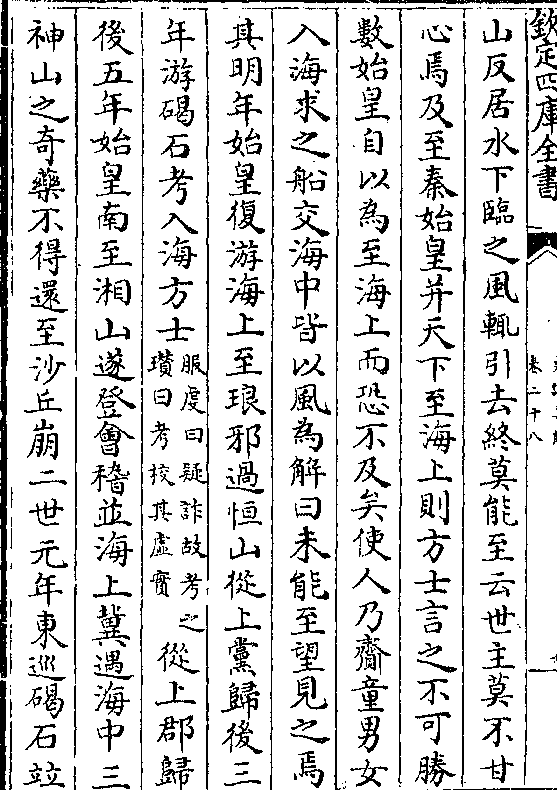 欽定四庫全書
卷二十八
山反居水下臨之風輒引去終莫能至云世主莫不甘
心焉及至秦始皇并天下至海上則方士言之不可勝
數始皇自以為至海上而恐不及矣使人乃齎童男女
入海求之船交海中皆以風為解曰未能至望見之焉
其明年始皇復游海上至琅邪過恒山從上黨歸後三
年游碣石考入海方士服虔曰疑詐故考之瓚曰考校其虛實從上郡歸
後五年始皇南至湘山遂登會稽並海上冀遇海中三
神山之奇藥不得還至沙丘崩二世元年東巡碣石竝